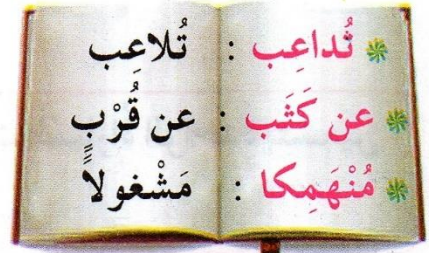 تُداعِب : تُلاعِب
عن كَثَب : عن قُرْبٍ
مُنْهَمِكا : مَشْغولاً